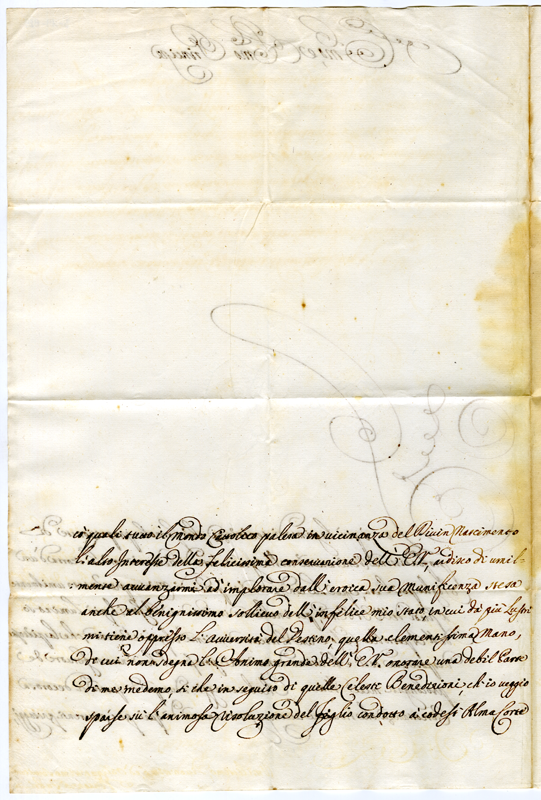 co' quali tutto il Mondo Cattolico palesa in vicinanza del Divin Nascimento
l'alto Interesse della felicissima conservazione dell'E.V., ardisco di umil-
mente avvanzarmi ad implorare dall'eroica sua Munificenza stesa
anche al benignissimo sollievo dell'infelice mio stato, in cui da più Lustri
mi tiene oppresso l'avversità del Destino, quella clementissima Mano,
di cui non sdegna l'Animo grande dell'E.V. onorare una debil Parte
di me medemo, si che in seguito di quelle Celesti Benedizioni, ch'io veggio
sparse sù l'animosa Risoluzione del figlio condotto a codest'Alma Corte